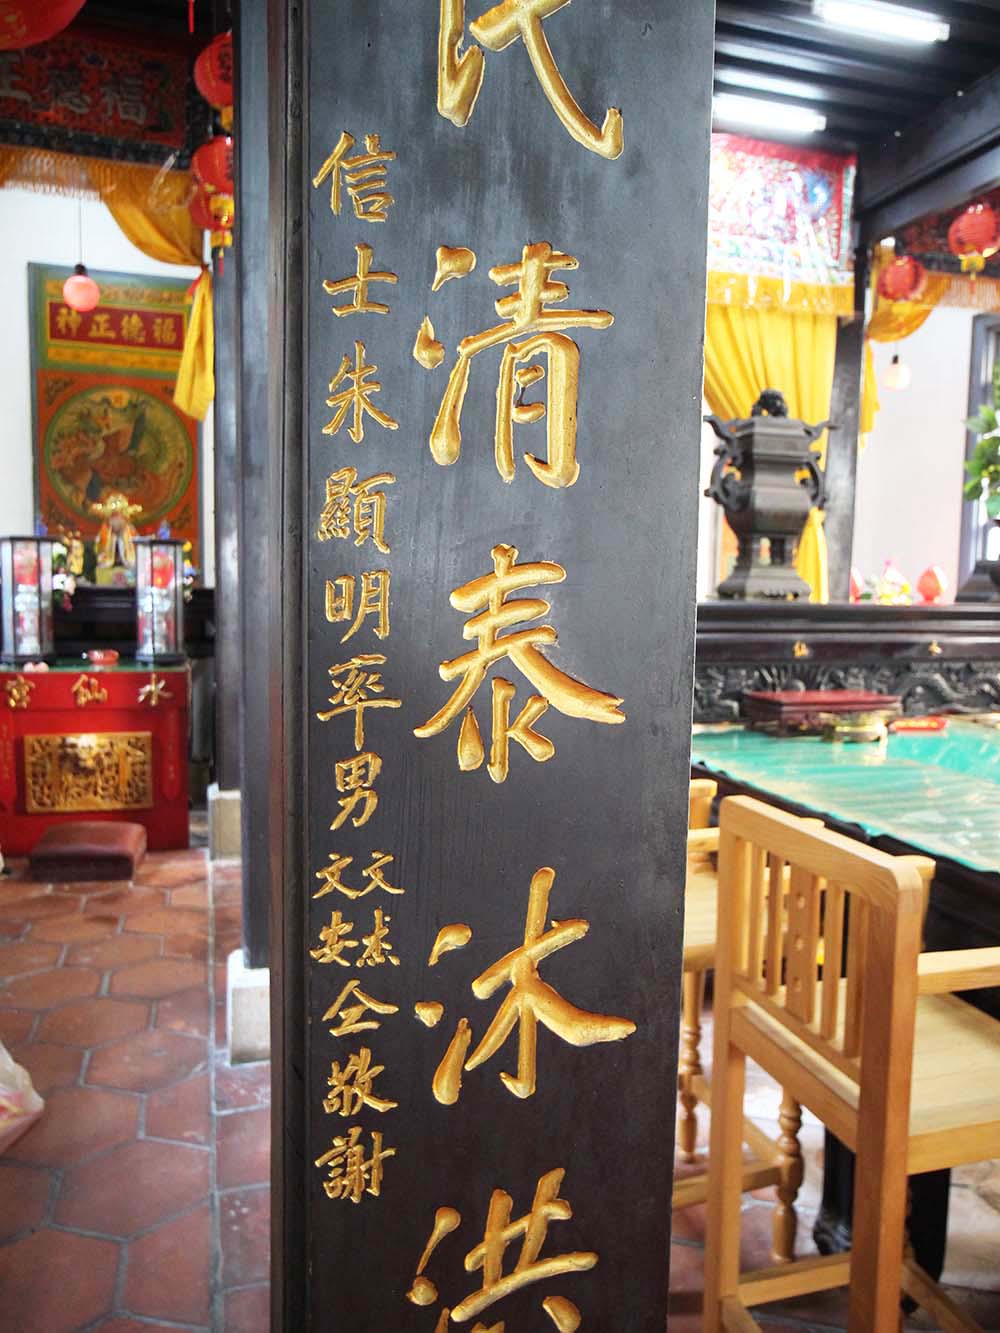 民清泰沐洪
信士朱顯明率男文杰文安仝敬謝
福德正
福德正神
水仙宮
水仙